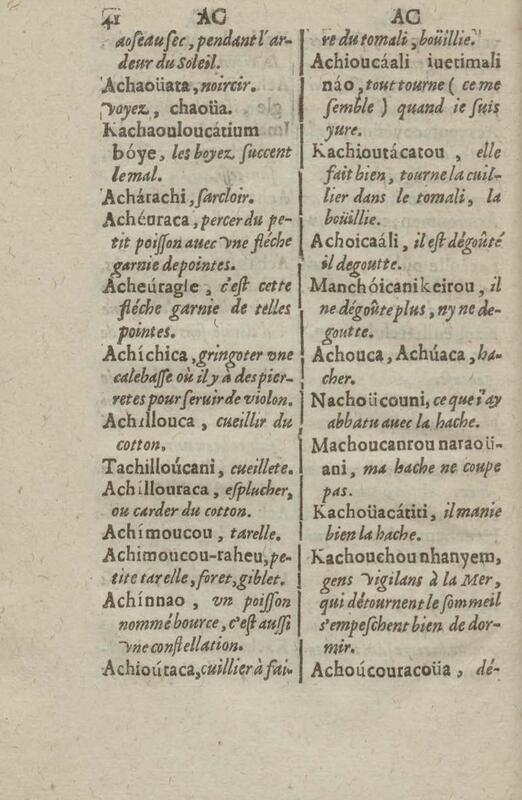 41 AC AC
aoseau sec, pendant l'ar-
deur du Soleil.
Achaoüata, noircir.
voyez, chaoüa.
Káchaouloucátium
bóye, les boyez succent
le mal.
Achárachi, sarcloir.
Achéuraca, percer du pe-
tit poisson auec vne fléche
garnie de pointes.
Acheúragle, c'est cette
fléche garnie de telles
pointes.
Achíchica, gringoter vne
calebasse où il y à des pier-
retes pour seruir de violon.
Achillouca, cueillir du
cotton.
Tachilloúcani, cueillete.
Achillouraca, esplucher,
ou carder du cotton.
Achímoucou, tarelle.
Achimoucou-raheu, pe-
tite tarelle, foret, giblet.
Achínnao, vn poisson
nommé bource, c'est aussi
vne constellation.
Achioútaca, cuillier à fai-
re du tomali, boüillie.
Achioucáali iuetimali
náo, tout tourne ( ce me
semble ) quand ie suis
yure.
Kachioutácatou, elle
fait bien, tourne la cuil-
lier dans le tomali, la
boüillie.
Achoicaáli, il est dégoûté
il degoutte.
Manchóicanikeirou, il
ne dégoûte plus, ny ne de-
goutte.
Achouca, Achúaca, ha-
cher.
Nachoücouni, ce que i'ay
abbatu auec la hache.
Machoucanrou naraoü-
ani, ma hache ne coupe
pas.
Kachoüacátiti, il manie
bien la hache.
Kachouchounhanyem,
gens vigilans à la Mer,
qui détournent le sommeil
s'empeschent bien de dor-
mir.
Achoúcouracoüa, dé-